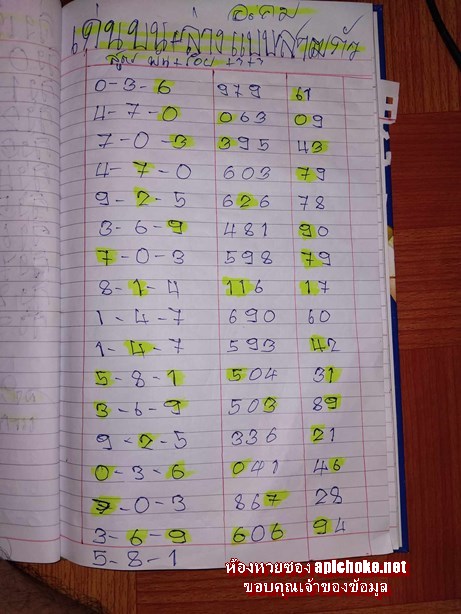 อ.คม
เด่นบน+ล่างแบบสามตัว
สูตร พัน+ร้อย
0-3-6 979 61
4-7-0 063 09
7-0-3 395 43
4-7-0 603 79
9-2-5 626 78
3-6-9 481 90
7-0-3 598 79
8-1-4 116 17
1-4-7 690 60
1-4-7 593 42
5-8-1 504 31
3-6-9 503 89
9-2-5 336 21
0-3-6 041 46
7-0-3 867 28
3-6-9 606 94
5-8-1
ห้องหวยซอง apichoke.net
ขอบคุณเจ้าของข้อมูล